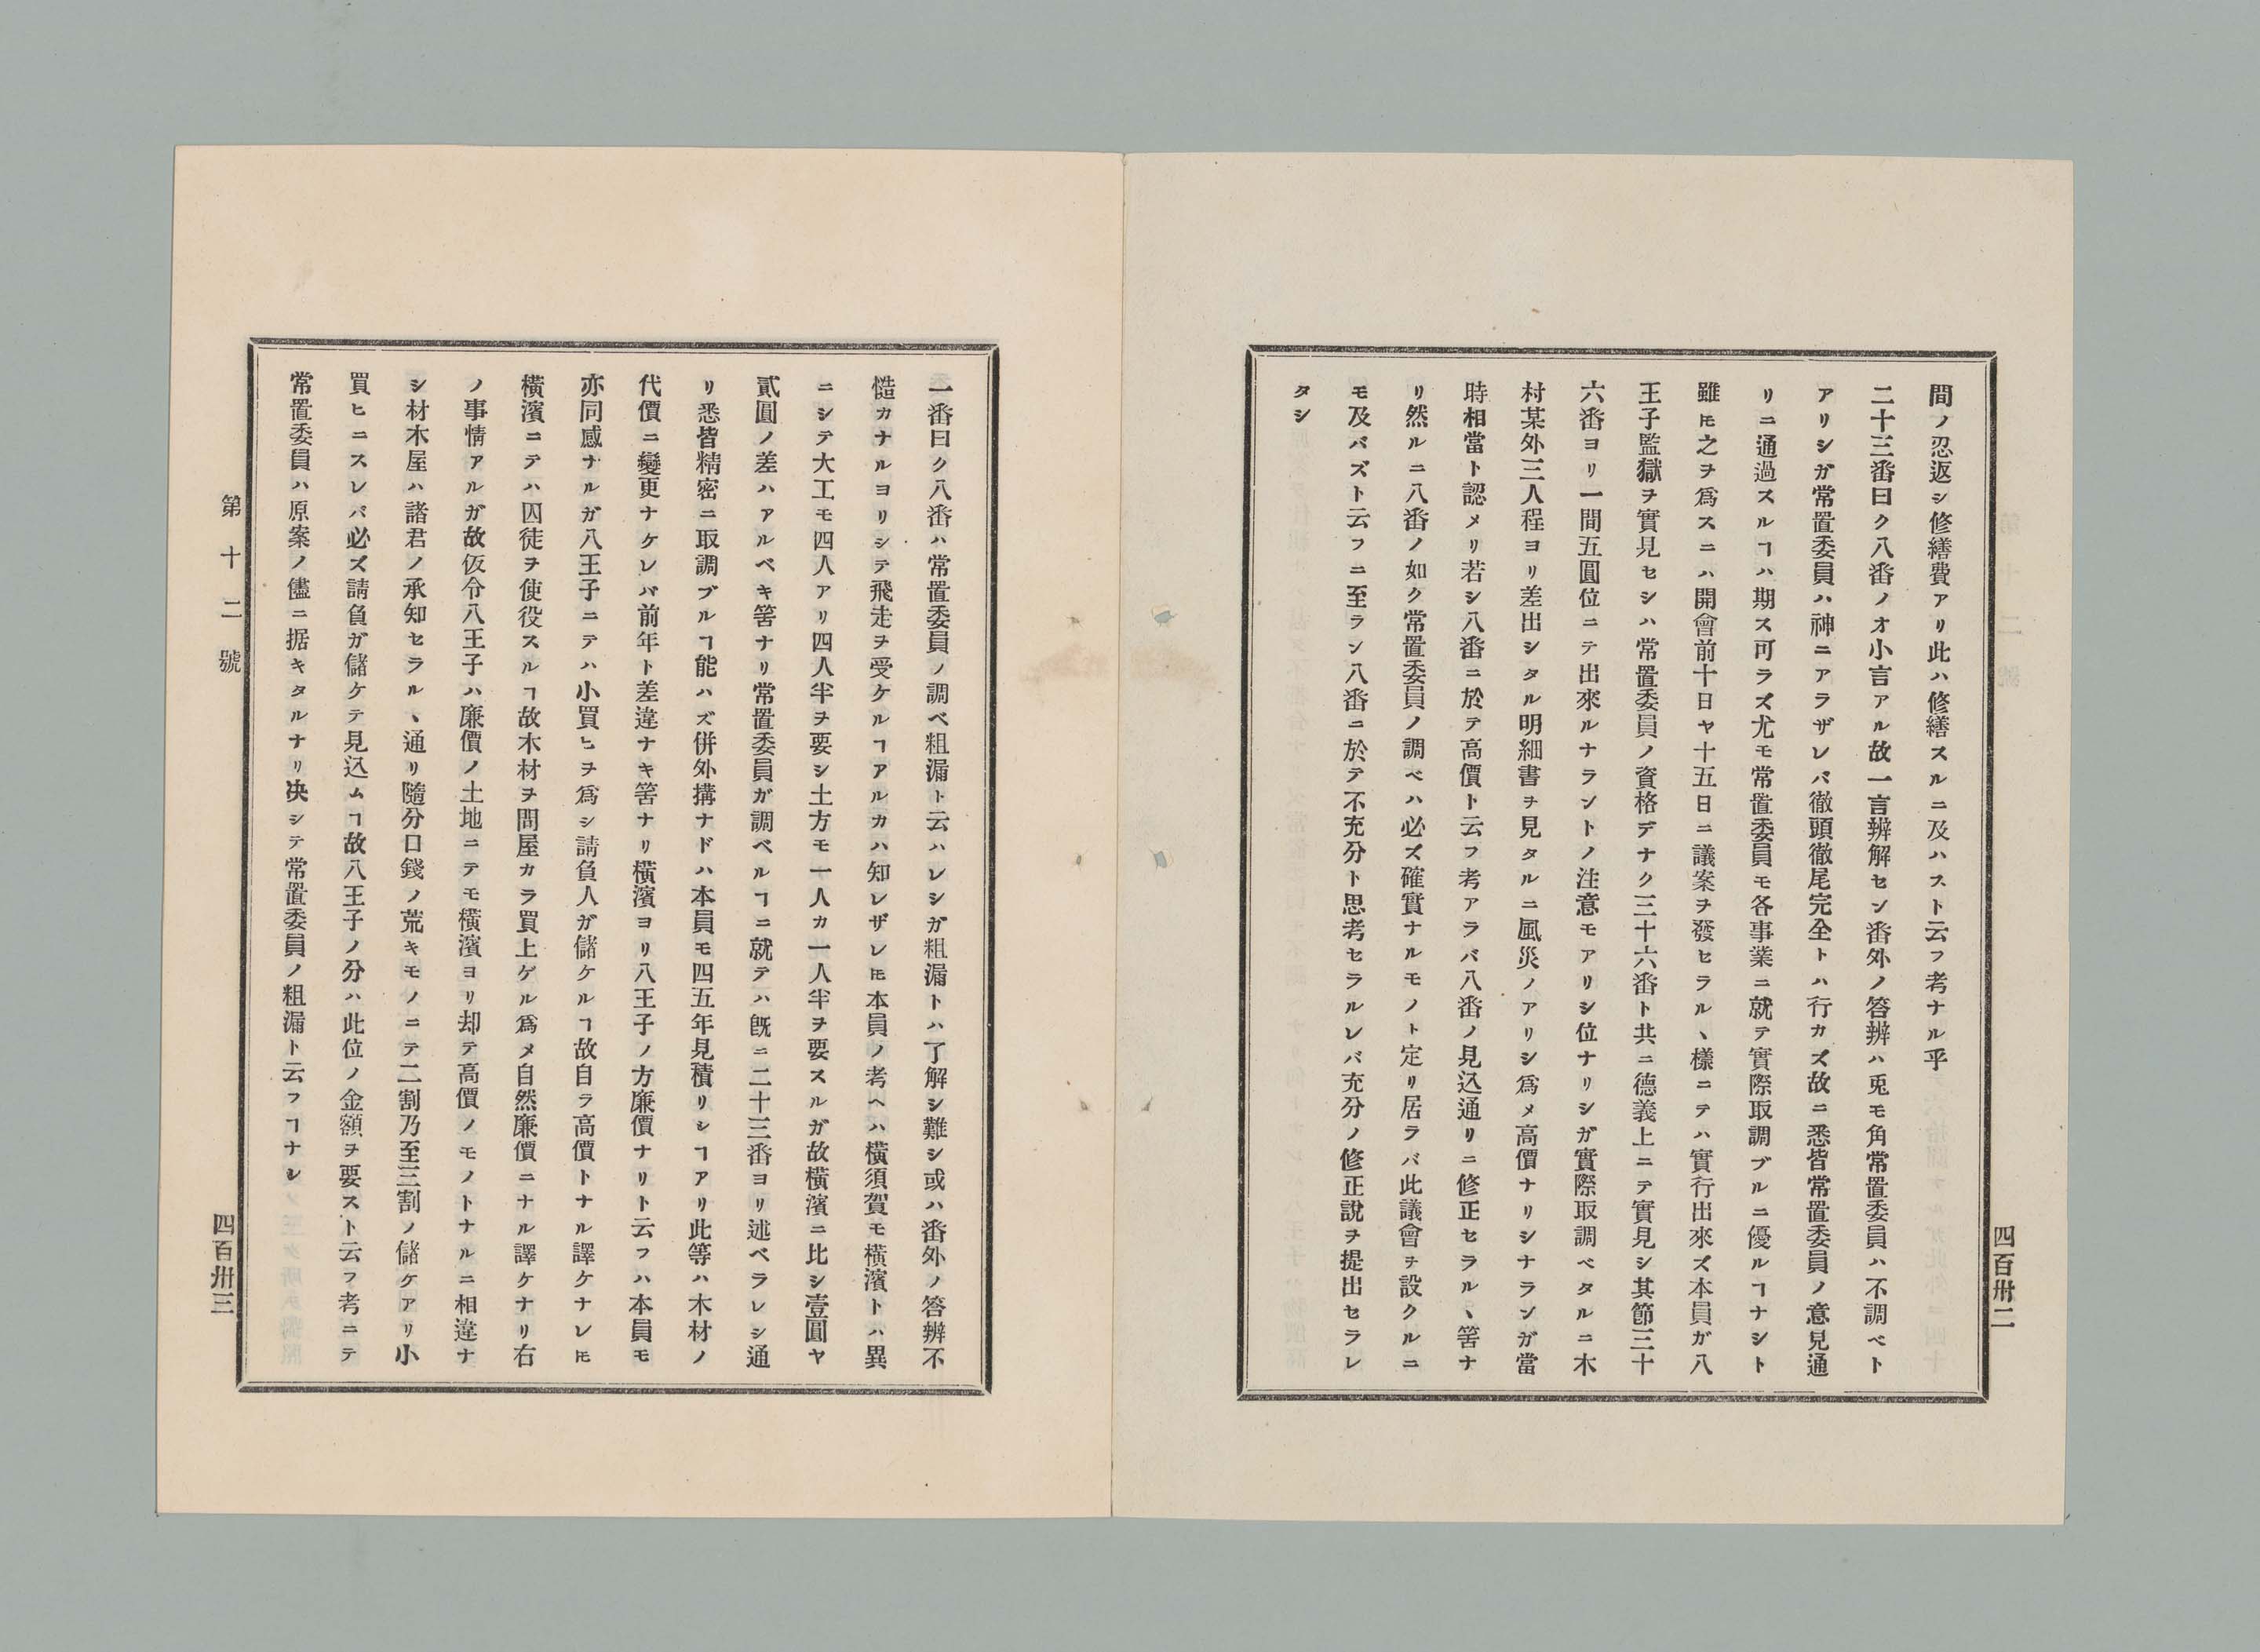 四百卅二
間ノ忍返シ修繕費アリ此ハ修繕スルニ及ハスト云フ考ナル乎
二十三番曰ク八番ノオ小言アル故一言辨解セン番外ノ答辨ハ兎モ角常置委員ハ不調ベト
アリシガ常置委員ハ神ニアラザレバ徹頭徹尾完全トハ行カズ故ニ悉皆常置委員ノ意見通
リニ通過スルヿハ期ス可ラズ尤モ常置委員モ各事業ニ就テ實際取調ブルニ優ルヿナシト
雖𪜈之ヲ爲スニハ開會前十日ヤ十五日ニ議案ヲ發セラルヽ樣ニテハ實行出來ズ本員ガ八
王子監獄ヲ實見セシハ常置委員ノ資格デナク三十六番ト共ニ德義上ニテ實見シ其節三十
六番ヨリ一間五圓位ニテ出來ルナラントノ注意モアリシ位ナリシガ實際取調ベタルニ木
村某外三人程ヨリ差出シタル明細書ヲ見タルニ風災ノアリシ爲メ高價ナリシナランガ當
時相當ト認メリ若シ八番ニ於テ高價ト云フ考アラバ八番ノ見込通リニ修正セラルヽ筈ナ
リ然ルニ八番ノ如ク常置委員ノ調ベハ必ズ確實ナルモノト定リ居ラバ此議會ヲ設クルニ
モ及バズト云フニ至ラン八番ニ於テ不充分ト思考セラルレバ充分ノ修正說ヲ提出セラレ
タシ
一番曰ク八番ハ常置委員ノ調ベ粗漏ト云ハレシガ粗漏トハ了解シ難シ或ハ番外ノ答辨不
慥カナルヨリシテ飛走ヲ受ケルヿアルカハ知レザレ𪜈本員ノ考ヘハ橫須賀モ橫濱トハ異
ニシテ大工モ四人アリ四人半ヲ要シ土方モ一人カ一人半ヲ要スルガ故橫濱ニ比シ壹圓ヤ
貳圓ノ差ハアルベキ筈ナリ常置委員ガ調ベルヿニ就テハ旣ニ二十三番ヨリ述ベラレシ通
リ悉皆精密ニ取調ブルヿ能ハズ併外搆ナドハ本員モ四五年見積リシヿアリ此等ハ木材ノ
代價ニ變更ナケレバ前年ト差違ナキ筈ナリ橫濱ヨリ八王子ノ方廉價ナリト云フハ本員モ
亦同感ナルガ八王子ニテハ小買ヒヲ爲シ請負人ガ儲ケルヿ故自ラ高價トナル譯ケナレ𪜈
橫濱ニテハ囚徒ヲ使役スルヿ故木材ヲ問屋カラ買上ゲル爲メ自然廉價ニナル譯ケナリ右
ノ事情アルガ故仮令八王子ハ廉價ノ土地ニテモ橫濱ヨリ却テ高價ノモノトナルニ相違ナ
シ材木屋ハ諸君ノ承知セラルヽ通リ隨分口錢ノ荒キモノニテ二割乃至三割ノ儲ケアリ小
買ヒニスレバ必ズ請負ガ儲ケテ見込ムヿ故八王子ノ分ハ此位ノ金額ヲ要スト云フ考ニテ
常置委員ハ原案ノ儘ニ据キタルナリ决シテ常置委員ノ粗漏ト云フヿナシ
第十二號
四百卅三